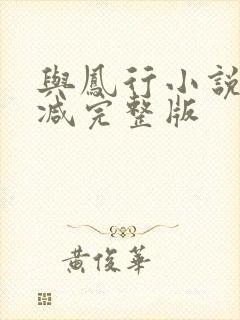 與鳳行小說
減完整版
黃俊華